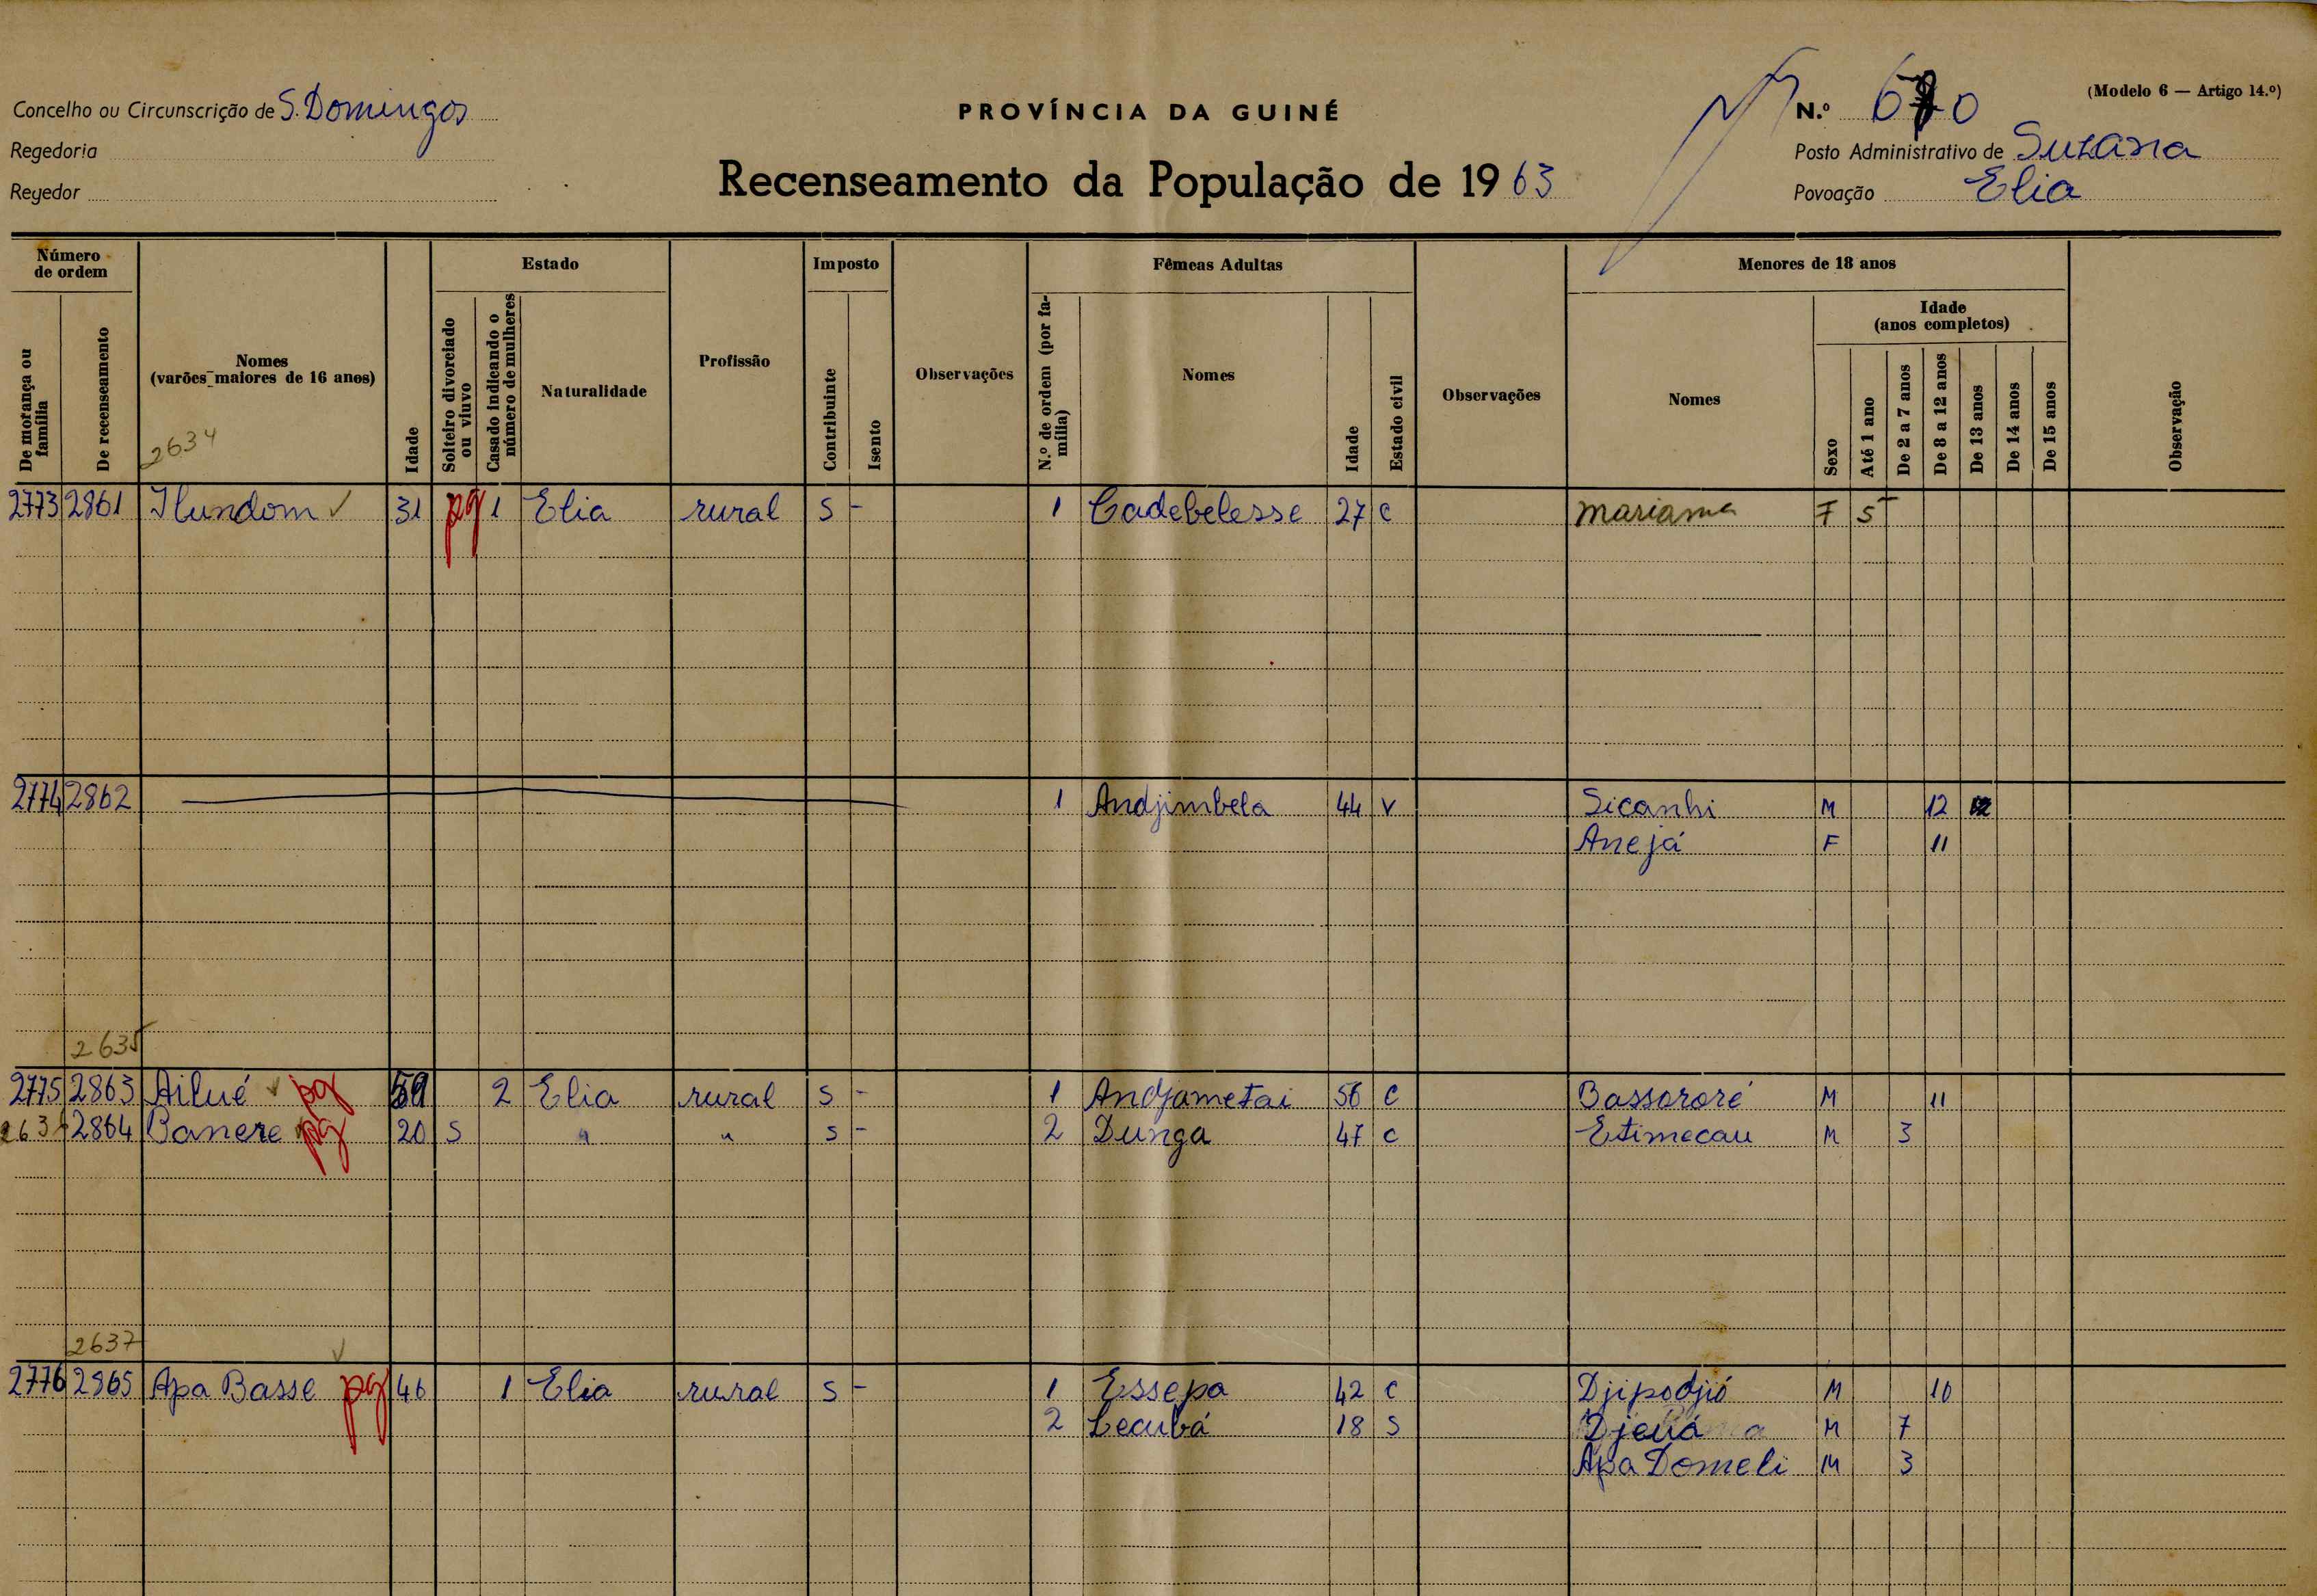 (Modelo 6 — Artigo 14.º)
Concelho ou Circunscrição de S. Domingos
PROVÍNCIA DA GUINÉ
N.º 670
Regedoria
Posto Administrativo de Suzana
Recenseamento da População de 1963
Regedor
Povoação Elia
Número de ordem
De morança ou família
De recenseamento
Nomes
(varões maiores de 16 anos)
2634
Idade
Estado
Solteiro divorciado ou viuvo
Casado indicando o número de mulheres
Naturalidade
Profissão
Imposto
Contribuinte
Isento
Observações
Fêmeas Adultas
N.º de ordem (por família)
Nomes
Idade
Estado civil
Observações
Menores de 18 anos
Nomes
Idade
(anos completos)
Sexo
Até 1 ano
De 2 a 7 anos
De 8 a 12 anos
De 13 anos
De 14 anos
De 15 anos
Observação
2773 2861 Ilundom ✓ 31 pg 1 Elia rural S - 1 Cadebelesse 27 C Mariama F 5
2774 2862 1 Andjimbela 44 V Sicanhi M 12
Anejá F 11
2635
2775 2863 Ailué ✓ pg 2 Elia rural S - 1 Andjametai 56 C Bassororé M 11
2864 Banere pg 20 S " " S - 2 Dunga 47 C Etimecau M 3
2637 ✓
2776 2865 Apa Basse pg 46 1 Elia rural S - 1 Essepa 42 C Djipodjió M 10
2 Lecubá 18 S M 7
Apa Domeli M 3